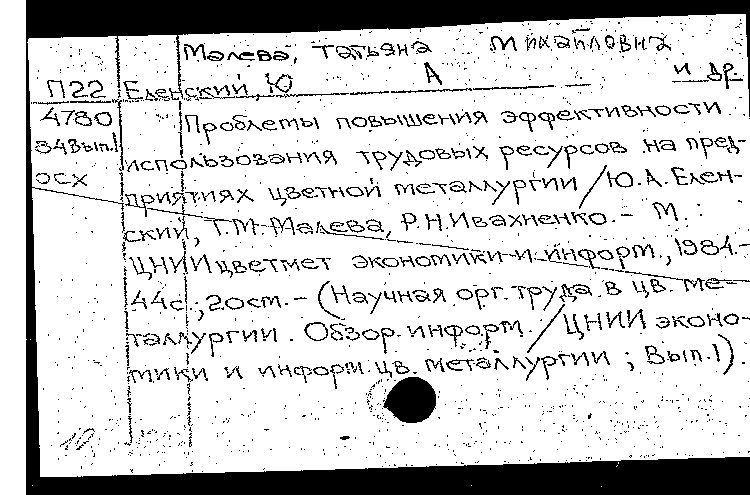 Малева, Татьяна Михайловна
П22 Еленский, Ю А и др
4780 Проблемы повышения эффективности
84Вып.1 использования трудовых ресурсов на пред-
осх приятиях цветной металлургии / Ю.А. Елен-
ский, Т.М. Малева, Р.Н. Ивахненко. – М. :
ЦНИИцветмет экономики и информ., 1984.–
44с.; 20см. – (Научная орг. труда в цв. ме-
таллургии. Обзор. информ. / ЦНИИ эконо-
мики и информ. цв. металлургии ; Вып.1).